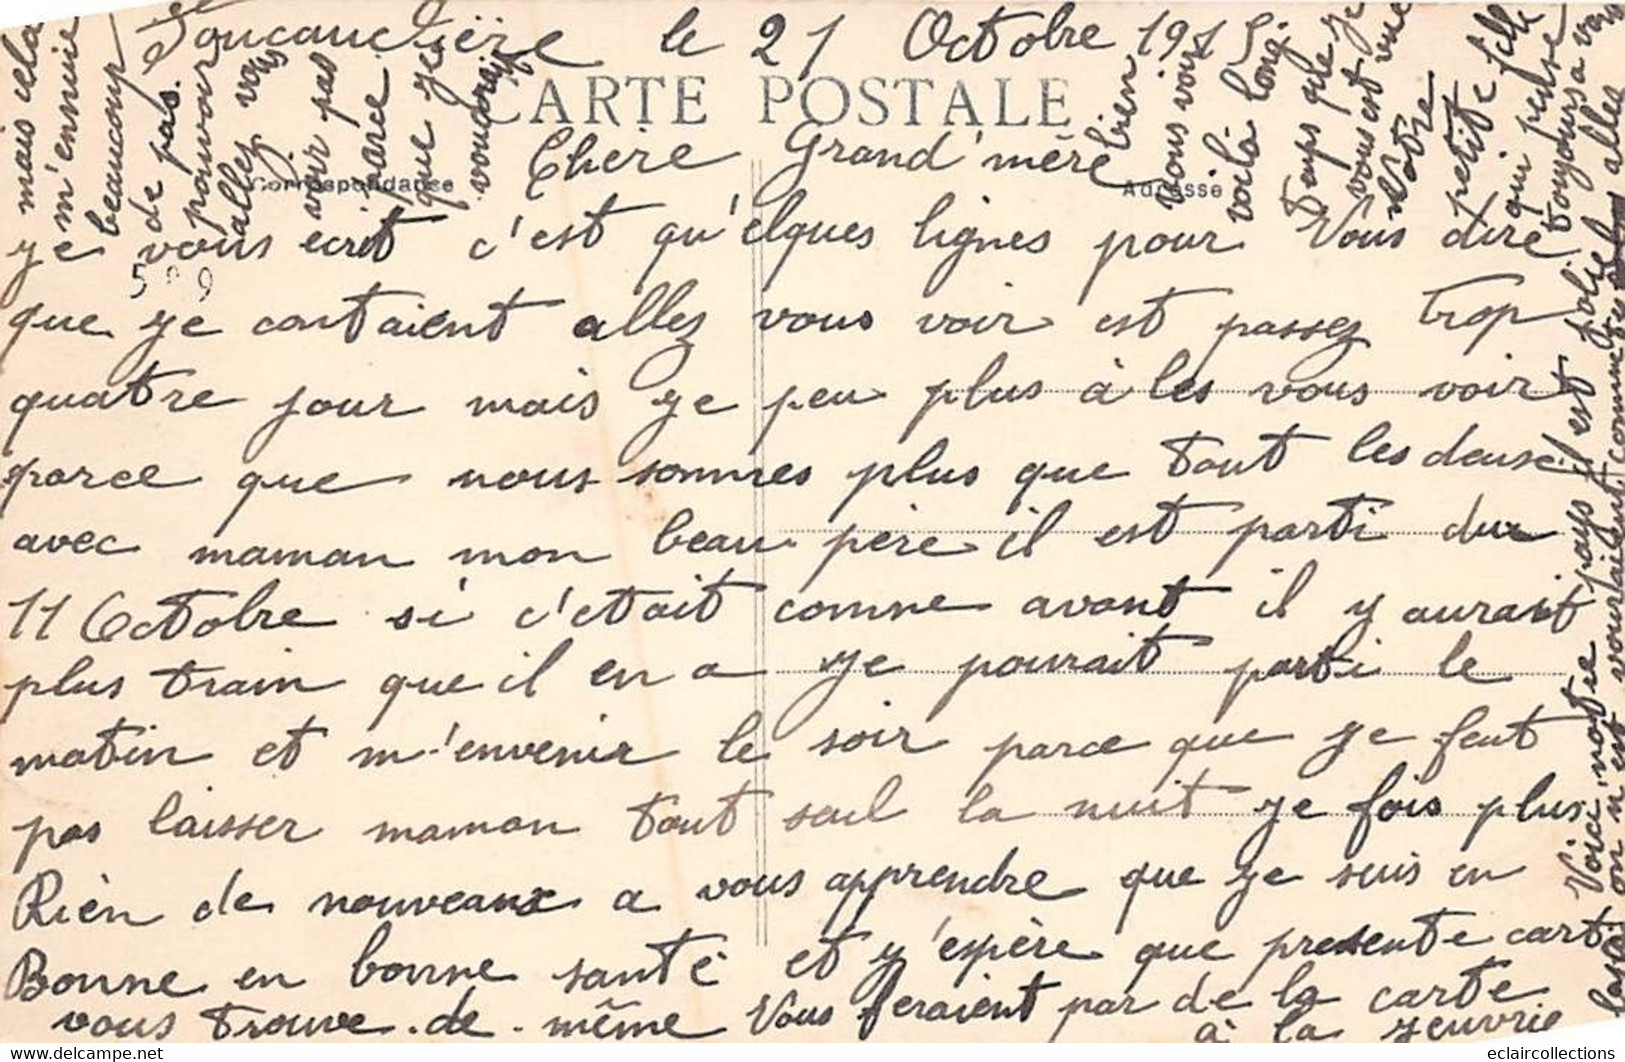 Foucaudière le 21 Octobre 1915
CARTE POSTALE
Correspondance
Adresse
Chère Grand'mère
je vous ecrit c'est qu'elques lignes pour Vous dire
que je contaient allez vous voir est passez trop
quatre jour mais je peu plus à les vous voir
parce que nous sommes plus que tout les deuse
avec maman mon beau père il est parti du
11 Octobre si c'etait comme avant il y aurait
plus train que il en a je pourait parti le
matin et m'envenir le soir parce que je feut
pas laisser maman tout seul la nuit je fois plus
Rien de nouveaux a vous apprendre que je suis en
Bonne en bonne santé et j'espère que presente cart
vous trouve de même Vous feraient par de la carte
à la
mais cela
m'ennuie
beaucoup
de pas
pouvoir
allez vous
voir pas
parce
que je
voudrais
bien
vous voir
voila long
temps que je
vous est vue
Votre
petite fille
qui pense
toujours a vous
Voici notre pays il est jolie
5 9
eclaircollections